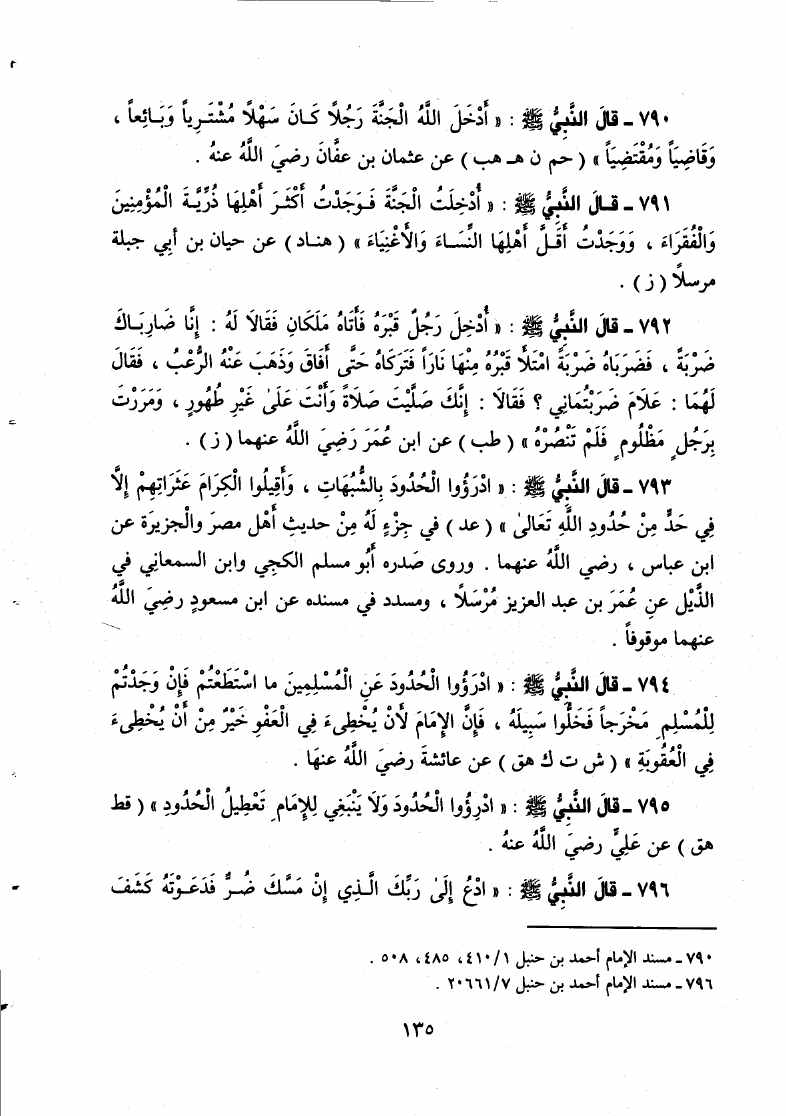 ٧٩٠ ـ قالَ النَّبِيُّ ﷺ : « أَدْخَلَ اللَّهُ الْجَنَّةَ رَجُلاً كَـانَ سَهْلاً مُشْتَـرِياً وَبَـائِعاً ،
وَقَاضِيَاً وَمُقْتَضِيَاً » ( حم ن هـ هب ) عن عثمان بن عفَّان رضيَ اللَّهُ عنهُ .
٧٩١ ـ قـالَ النَّبِيُّ ﷺ : « أُدْخِلَتُ الْجَنَّةَ فَـوَجَدْتُ أَكْثَـرَ أَهْلِهَا ذُرِّيَـةَ الْمُؤْمِنِينَ
وَالْفُقَرَاءَ ، وَوَجَدْتُ أَقَـلَّ أَهْلِهَا النِّسَـاءَ وَالأَغْنِيَاءَ » ( هنـاد ) عن حيان بن أبي جبلة
مرسلاً ( ز ) .
٧٩٢ ـ قالَ النَّبِيُّ ﷺ : « أُدْخِلَ رَجُلٌ قَبْرَهُ فَأَتَاهُ مَلَكَانِ فَقَالاَ لَهُ : إِنَّا ضَارِبَـاكَ
ضَرْبَةً ، فَضَرَبَاهُ ضَرْبَةً امْتَلأَ قَبْرُهُ مِنْهَا نَارَاً فَتَرَكَاهُ حَتَّى أَفَاقَ وَذَهَبَ عَنْهُ الرُّعْبُ ، فَقَالَ
لَهُمَا : عَلاَمَ ضَرَبْتُمَانِي ؟ فَقَالاَ : إِنَّكَ صَلَّيْتَ صَلاَةً وَأَنْتَ عَلَى غَيْرِ طُهُورٍ ، وَمَرَرْتَ
بِرَجُلٍ مَظْلُومٍ فَلَمْ تَنْصُرْهُ » ( طب ) عن ابن عُمَرَ رَضِيَ اللَّهُ عنهما ( ز ) .
٧٩٣ ـ قالَ النَّبِيُّ ﷺ : « ادْرَؤُوا الْحُدُودَ بِالشُّبُهَاتِ ، وَأَقِيلُوا الْكِرَامَ عَثَرَاتِهِمْ إِلاَّ
فِي حَدٍّ مِنْ حُدُودِ اللَّهِ تَعَالَىٰ » ( عد ) في جزْءٍ لَهُ مِنْ حديثِ أَهْل مصرَ والْجزيرَة عن
ابن عباس ، رضي اللَّهُ عنهما . وروى صَدره أَبُو مسلم الكجي وابن السمعاني في
الذَّيْل عنِ عُمَرَ بن عبد العزيز مُرْسَلاً ، ومسدد في مسنده عن ابن مسعودٍ رضيَ اللَّهُ
عنهما موقوفاً .
٧٩٤ ـ قالَ النَّبِيُّ ﷺ : « ادْرَؤُوا الْحُدُودَ عَنِ الْمُسْلِمِينَ ما اسْتَطَعْتُمْ فَإِنْ وَجَدْتُمْ
لِلْمُسْلِمِ مَخْرَجاً فَخَلُّوا سَبِيلَهُ ، فَإِنَّ الإِمَامَ لَأَنْ يُخْطِىءَ فِي الْعَفْوِ خَيْرٌ مِنْ أَنْ يُخْطِىءَ
فِي الْعُقُوبَةِ » ( ش ت ك هق ) عن عائشةَ رضيَ اللَّهُ عنهَا .
٧٩٥ ـ قالَ النَّبِيُّ ﷺ : « ادْرِؤُوا الْحُدُودَ وَلاَ يَنْبَغِي لِلإِمَامِ تَعْطِيلُ الْحُدُودِ » ( قط
هق ) عن عَلِيٍّ رضيَ اللَّهُ عنهُ .
٧٩٦ ـ قالَ النَّبِيُّ ﷺ : « ادْعُ إِلَىٰ رَبِّكَ الَّـذِي إِنْ مَسَّكَ ضُـرٌّ فَدَعَـوْتَهُ كَشَفَ
٧٩٠ ـ مسند الإمام أحمد بن حنبل ١/ ٤١٠ ، ٤٨٥ ، ٥٠٨ .
٧٩٦ ـ مسند الإمام أحمد بن حنبل ٧/ ٢٠٦٦١ .
١٣٥